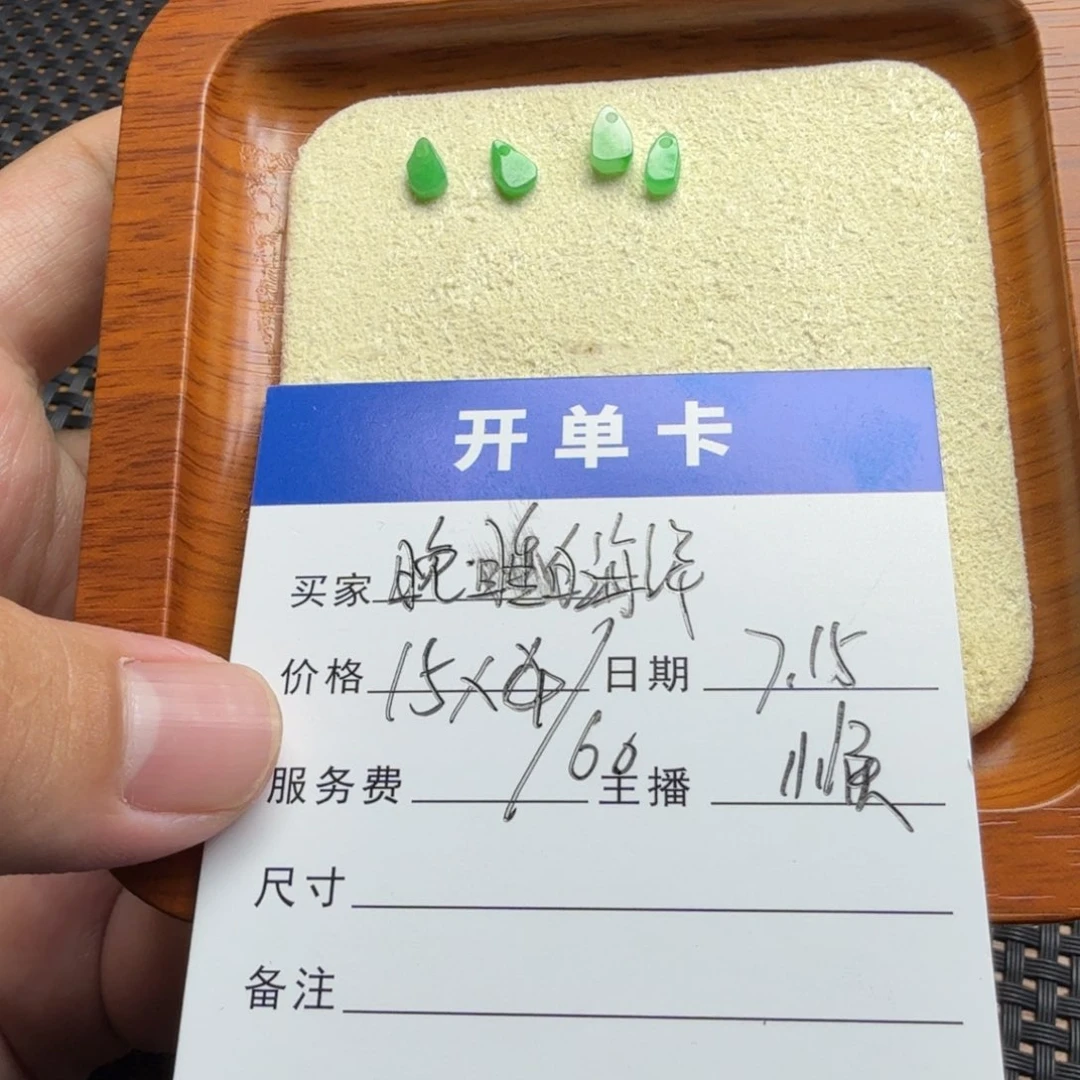 开单卡
买家 晚 的海洋
价格 15×4/60 日期 7.15
服务费 主播 小顺
尺寸
备注